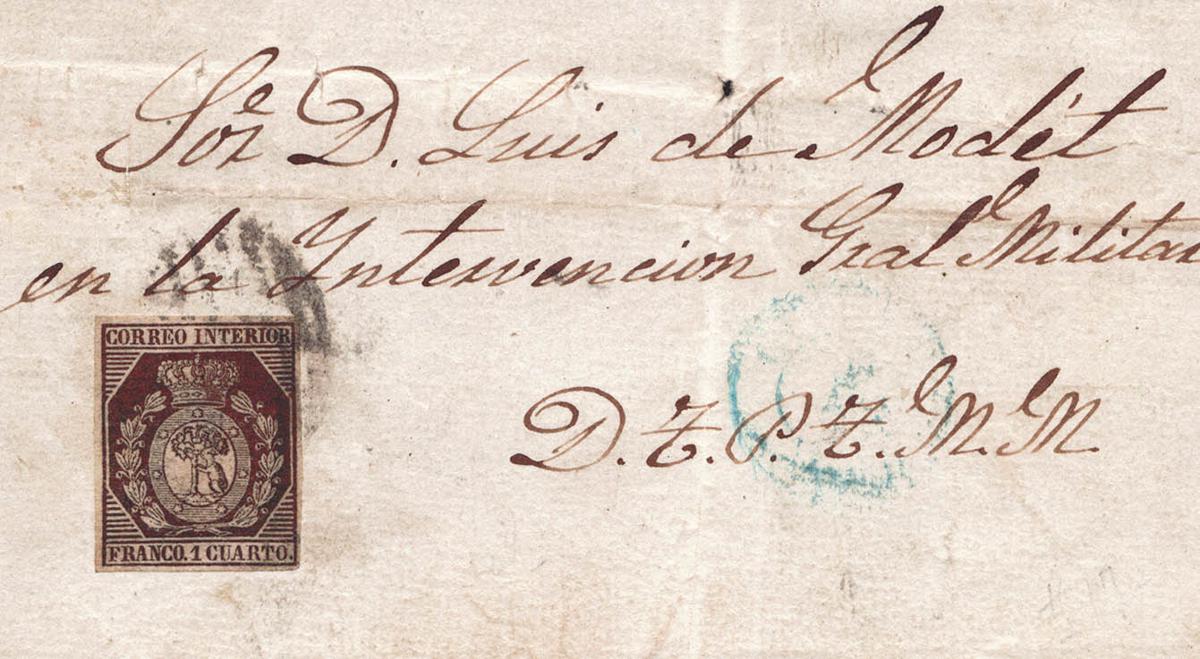 Sor D. Luis de Modét
en la Yntervencion Gral Militar
D. Z. P. Z. M. M.
CORREO INTERIOR
FRANCO. 1 CUARTO.